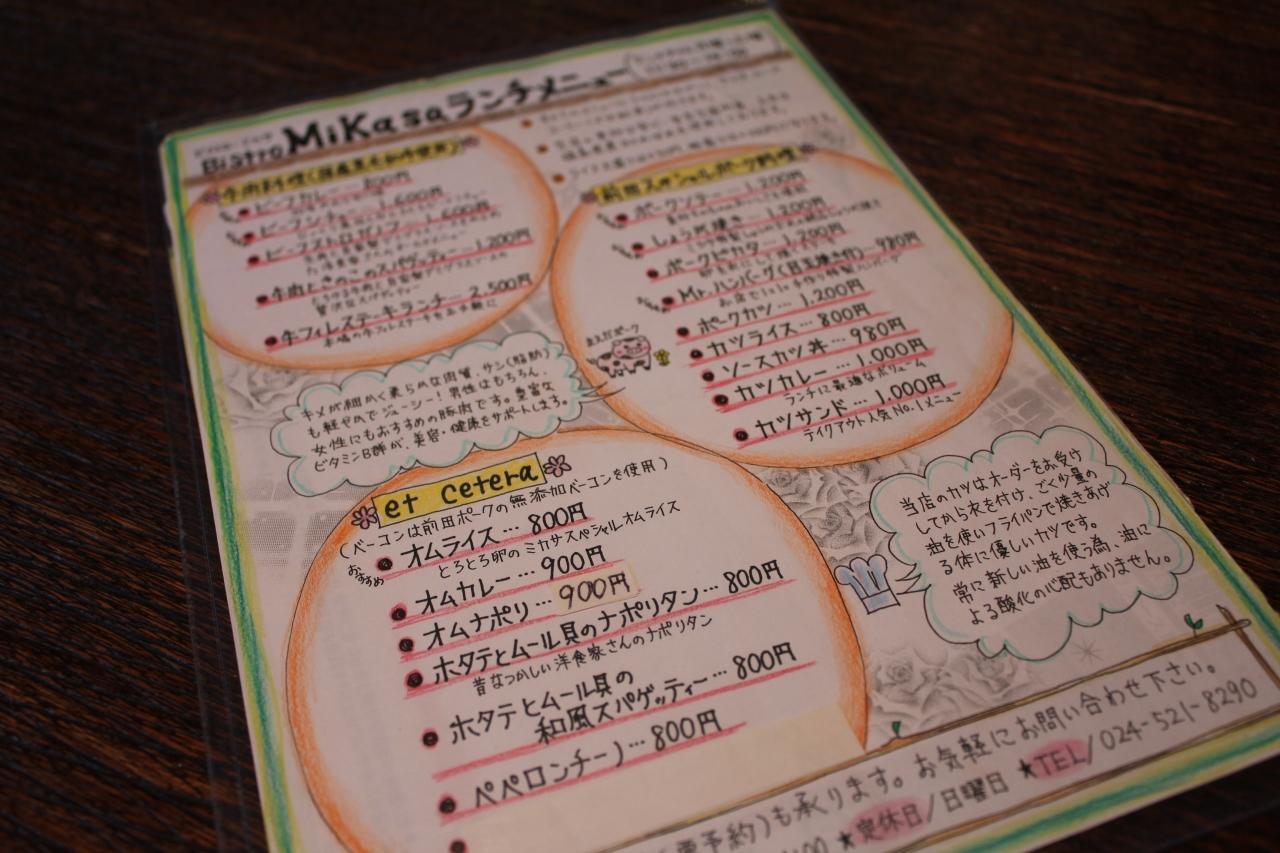 Bistro MiKasaランチメニュー
牛肉料理(国産黒毛和牛使用)
ビーフカレー… 800円
ビーフシチュー… 1,600円
ビーフストロガノフ… 1,600円
牛肉ときのこのスパゲッティー… 1,200円
牛フィレステーキランチ… 2,500円
前田スペシャルポーク料理
ポークソテー… 1,200円
しょうが焼き… 1,200円
ポークピカタ… 1,200円
Mr.ハンバーグ(目玉焼き付)… 980円
お店で1つ1つ手作り特製ハンバーグ
ポークカツ… 1,200円
カツライス… 800円
ソースカツ丼… 980円
カツカレー… 1,000円
ランチに最適なボリューム
カツサンド… 1,000円
テイクアウト人気No.1メニュー
まえだポーク
キメが細かく柔らかな肉質、サシ(脂肪)
も軽やかでジューシー!男性はもちろん、
女性にもおすすめの豚肉です。豊富な
ビタミンB群が、美容・健康をサポートします。
et cetera
(ベーコンは前田ポークの無添加ベーコンを使用)
おすすめ
オムライス… 800円
とろとろ卵のミカサスペシャルオムライス
オムカレー… 900円
オムナポリ… 900円
ホタテとムール貝のナポリタン… 800円
昔なつかしい洋食家さんのナポリタン
ホタテとムール貝の
和風スパゲッティー… 800円
ペペロンチーノ… 800円
当店のカツはオーダーをお受け
してから衣を付け、ごく少量の
油を使いフライパンで焼きあげ
る体に優しいカツです。
常に新しい油を使う為、油に
よる酸化の心配もありません。
(要予約)も承ります。お気軽にお問い合わせ下さい。
:00 ★定休日/日曜日 ★TEL/024-521-8290